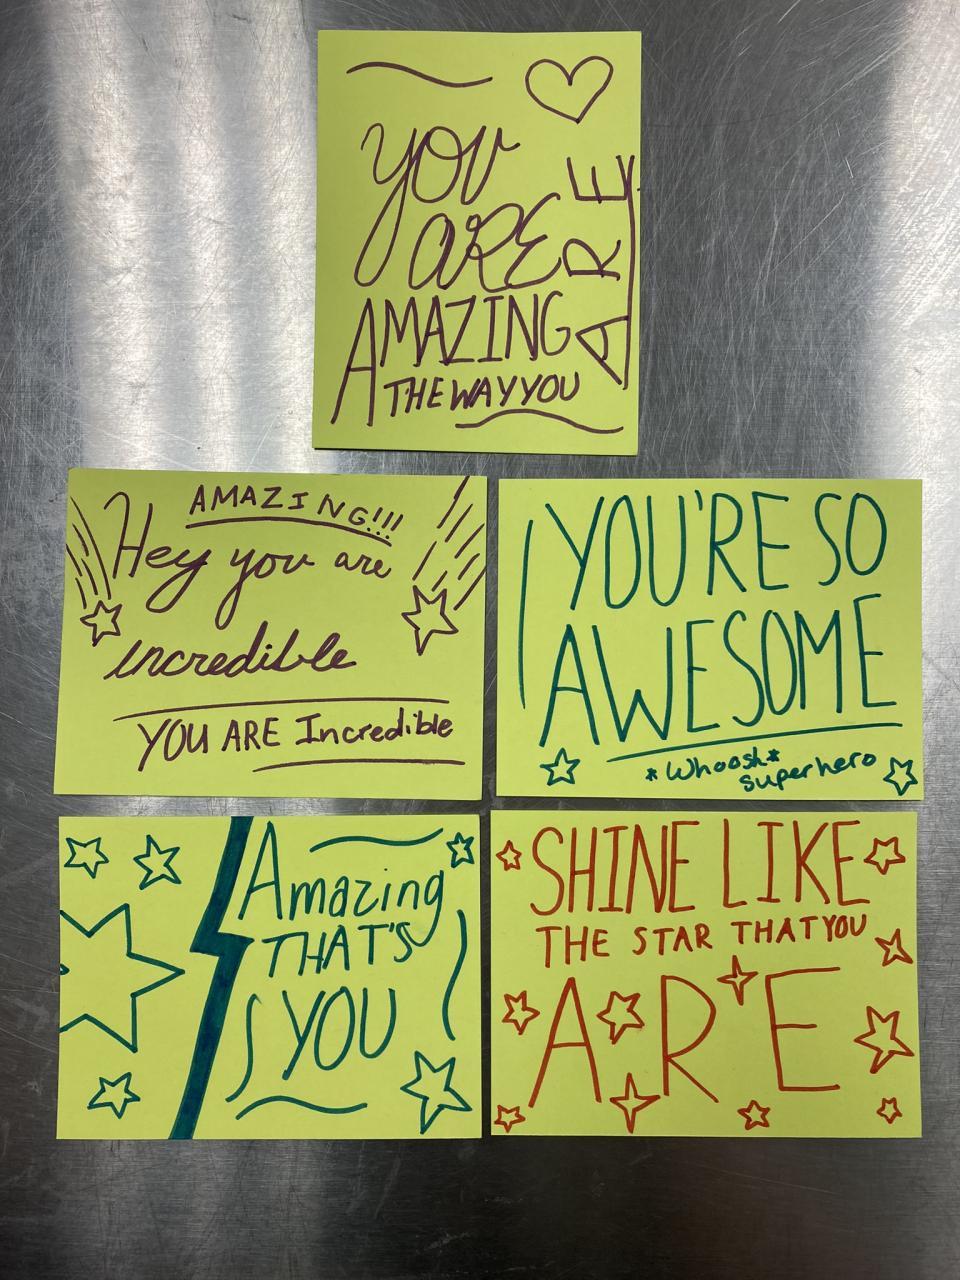 you
ARE
AMAZING
THE WAY YOU
ARE
AMAZING!!!
Hey you are
incredible
YOU ARE Incredible
YOU'RE SO
AWESOME
*Whoosh*
superhero
Amazing
THAT'S
YOU
SHINE LIKE
THE STAR THAT YOU
ARE